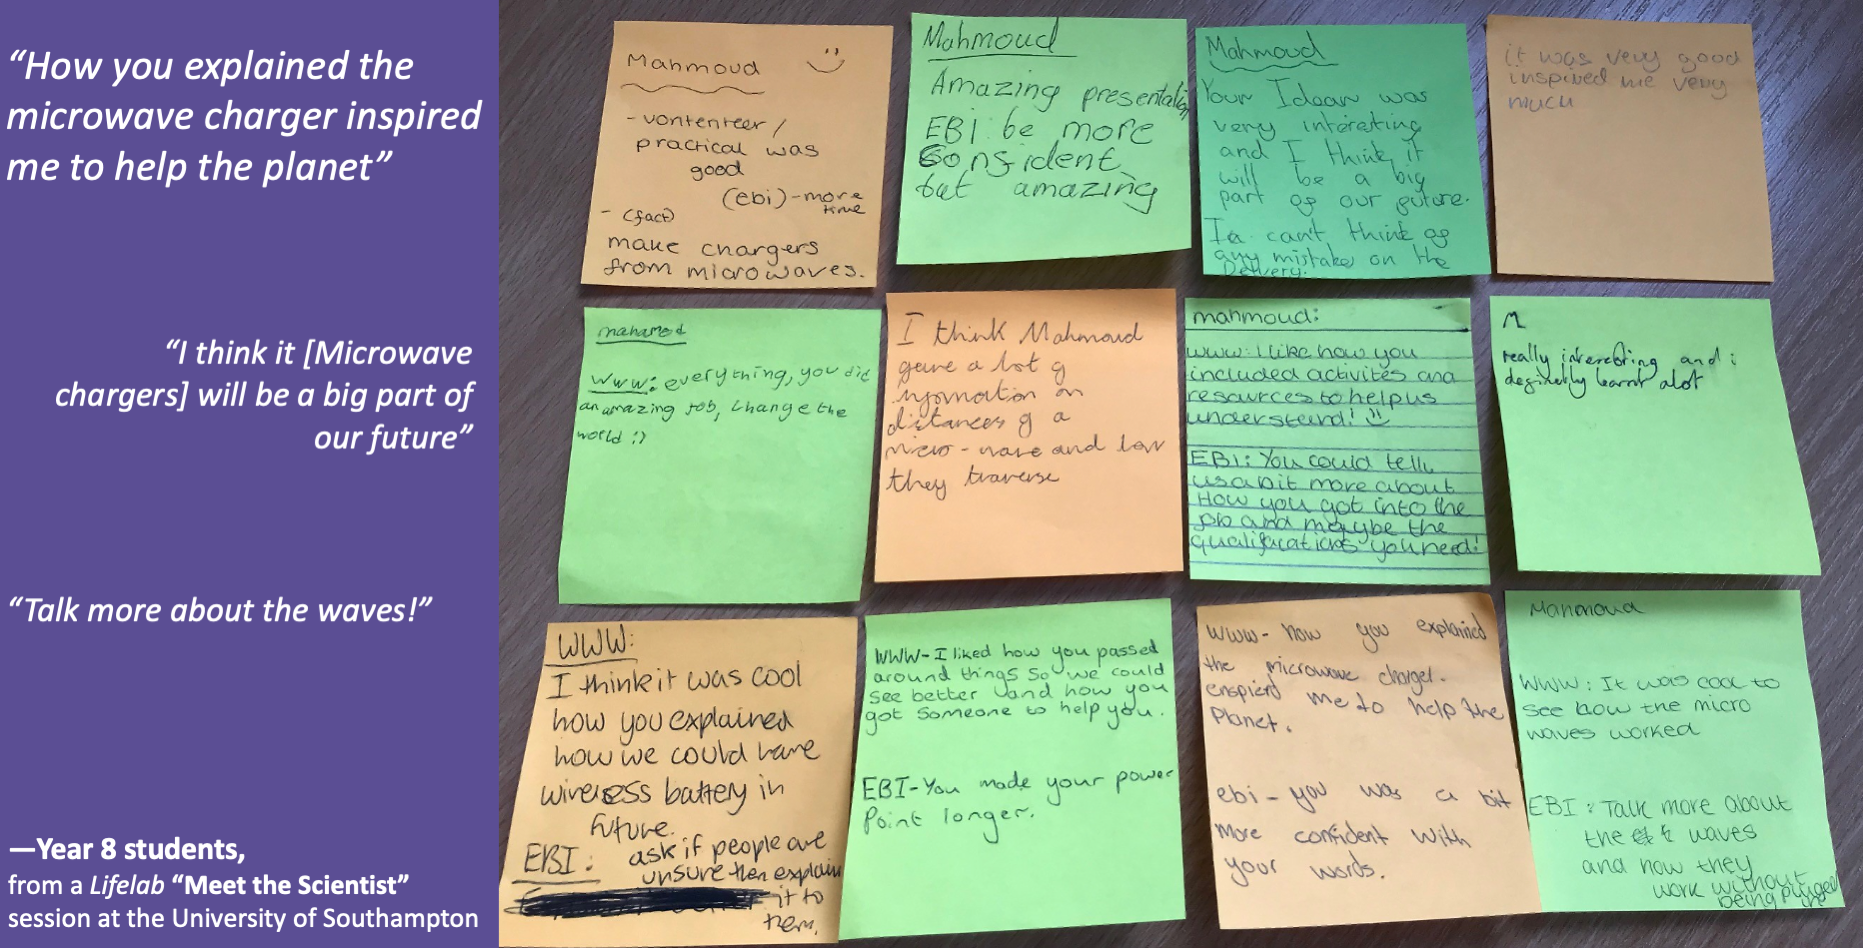 “How you explained the
microwave charger inspired
me to help the planet”
“I think it [Microwave
chargers] will be a big part of
our future”
“Talk more about the waves!”
—Year 8 students,
from a Lifelab “Meet the Scientist”
session at the University of Southampton
Mahmoud
- vontenteer /
practical was
good
(ebi) - more
time
- (fact)
make chargers
from microwaves.
Mahmoud
Amazing presentation
EBI: be more
confident
but amazing
Mahmoud
Your Idear was
very interesting
and I think it
will be a big
part of our future.
I can't think of
any mistake on the
Delivery.
it was very good
inspired me very
much
mahamed
WWW: everything, you did
an amazing job, change the
world :)
I think Mahmoud
gave a lot of
information on
distances of a
micro-wave and how
they traverse
mahmoud:
WWW: I like how you
included activites and
resources to help us
understand! :)
EBI: You could tell
us a bit more about
How you got into the
job and maybe the
qualifacations you need!
M
really interesting and :
definetly learnt alot
WWW:
I think it was cool
how you explained
how we could have
wireless battery in
future.
EBI: ask if people are
unsure then explain
it to
them.
WWW-I liked how you passed
around things so we could
see better and how you
got someone to help you.
EBI-You made your power
Point longer.
WWW- how you explained
the microwave charger.
enspierd me to help the
Planet.
ebi - you was a bit
more confident with
your words.
Mahmoud
WWW: It was cool to
see how the micro
waves worked
EBI: Talk more about
the waves
and how they
work without
being plugged